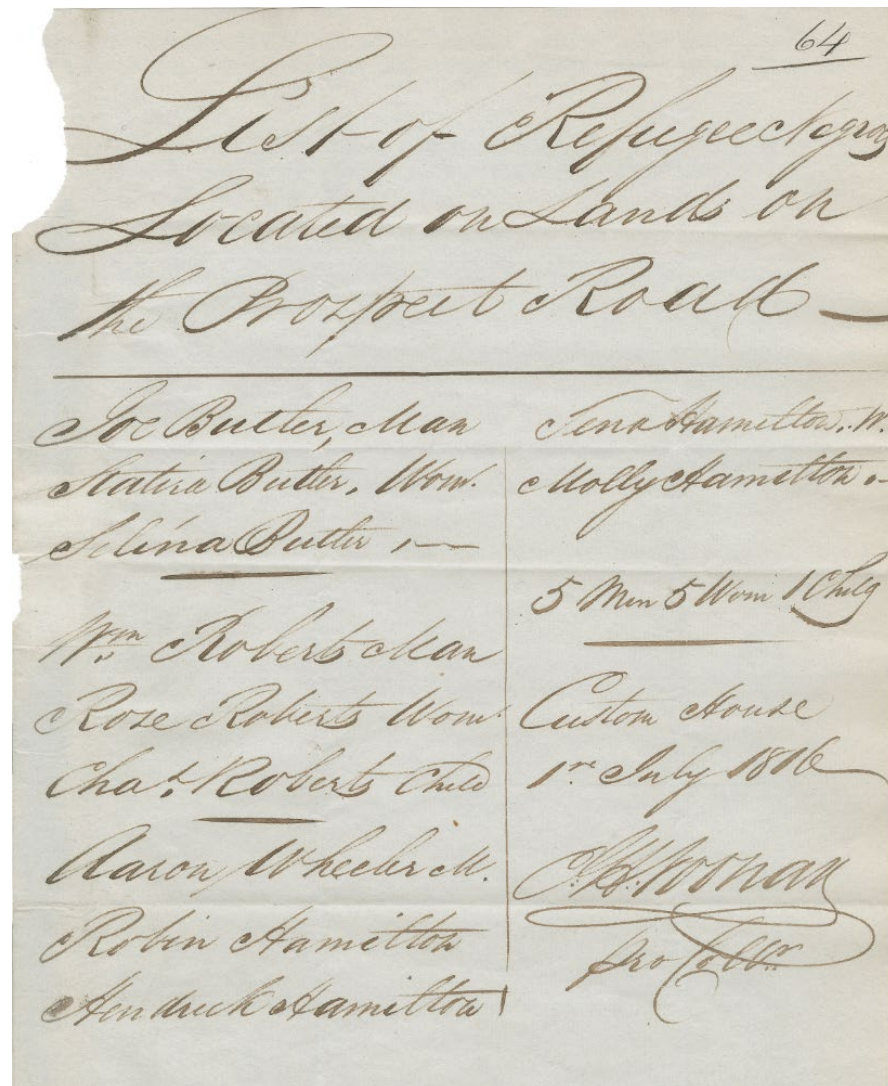 64
List of Refugee Negros
Located on Lands on
the Prospect Road —
Joe Butler, Man
Statira Butler, Wom.
Selina Butler, —
Wm Roberts Man
Rose Roberts Wom.
Chas. Roberts Child
Aaron Wheeler M.
Robin Hamilton
Hendrick Hamilton
Tena Hamilton, W.
Molly Hamilton, —
5 Men 5 Wom 1 Child
Custom House
July 1816